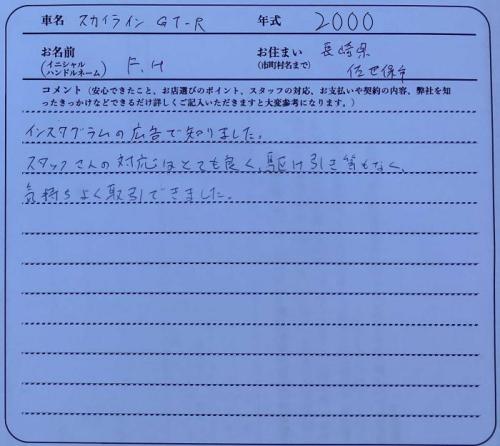 車名 スカイライン GT-R 年式 2000
お名前 (イニシャル ハンドルネーム) F.H お住まい (市町村名まで) 長崎県 佐世保市
コメント（安心できたこと、お店選びのポイント、スタッフの対応、お支払いや契約の内容、弊社を知
ったきっかけなどできるだけ詳しくご記入いただきますと大変参考になります。）
インスタグラムの広告で知りました。
スタッフさんの対応はとても良く、駆け引き等もなく、
気持ちよく取引できました。